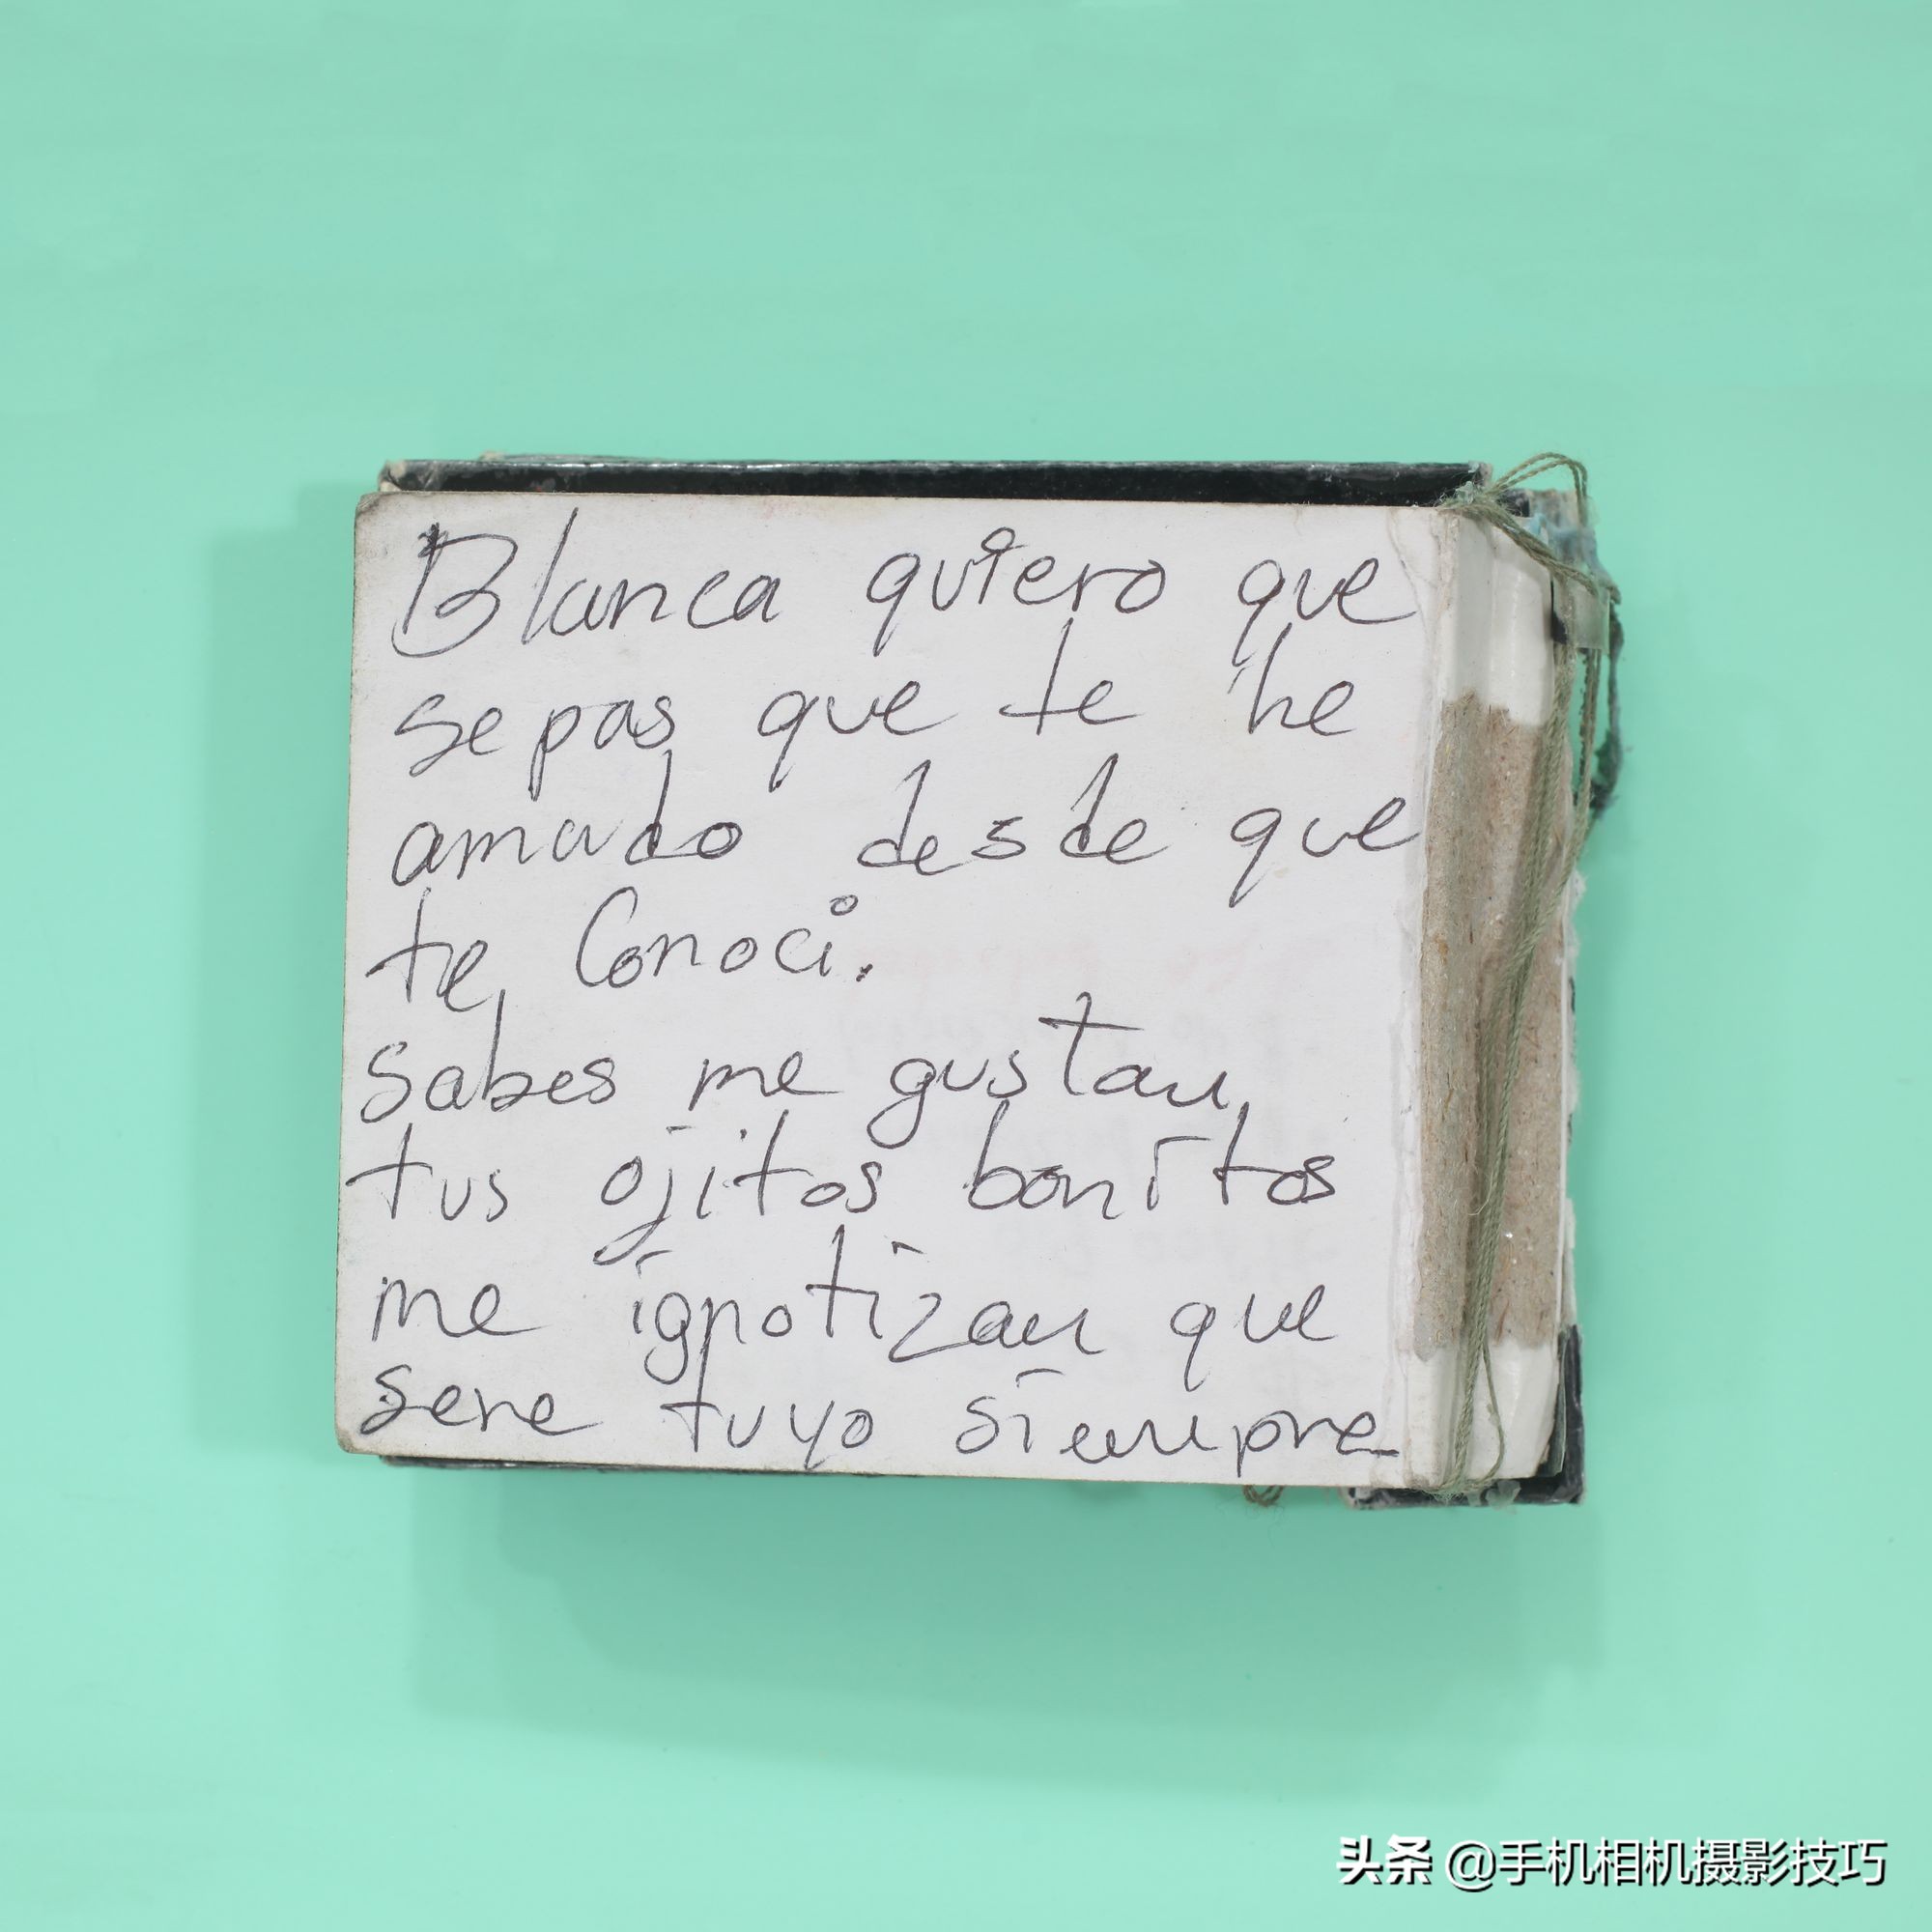 Blanca quiero que
sepas que te he
amado desde que
te Conoci.
sabes me gustan
tus ojitos bonitos
me ignotizan que
sere tuyo siempre
头条 @手机相机摄影技巧